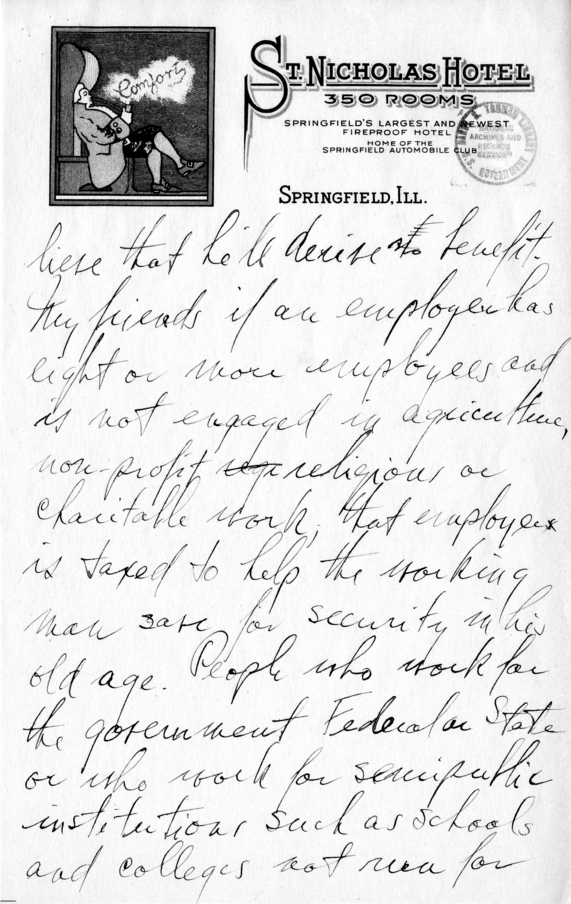 Comfort
ST. NICHOLAS HOTEL
350 ROOMS
SPRINGFIELD'S LARGEST AND NEWEST
FIREPROOF HOTEL
HOME OF THE
SPRINGFIELD AUTOMOBILE CLUB
HARRY S. TRUMAN LIBRARY
NATIONAL
ARCHIVES AND
RECORDS
SERVICE
U.S. GOVERNMENT
SPRINGFIELD, ILL.
lieve that he'll derive benefit.
My friends if an employer has
eight or more employees and
is not engaged in agriculture,
non-profit religious or
charitable work, that employer
is taxed to help the working
man save for security in his
old age. People who work for
the government Federal or State
or who work for semipublic
institutions such as schools
and colleges not run for